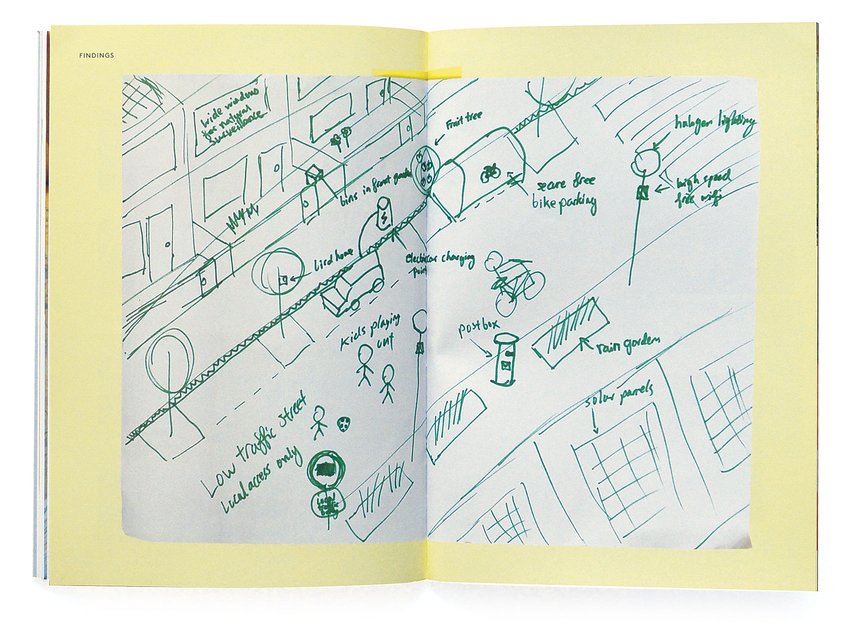 FINDINGS
wide windows
for natural
surveillance
bins in front garden
bird house
Fruit tree
electric car charging
point
secure free
bike parking
halogen lighting
high speed
free wifi
Kids playing
out
postbox
rain garden
solar panels
Low traffic street
Local access only